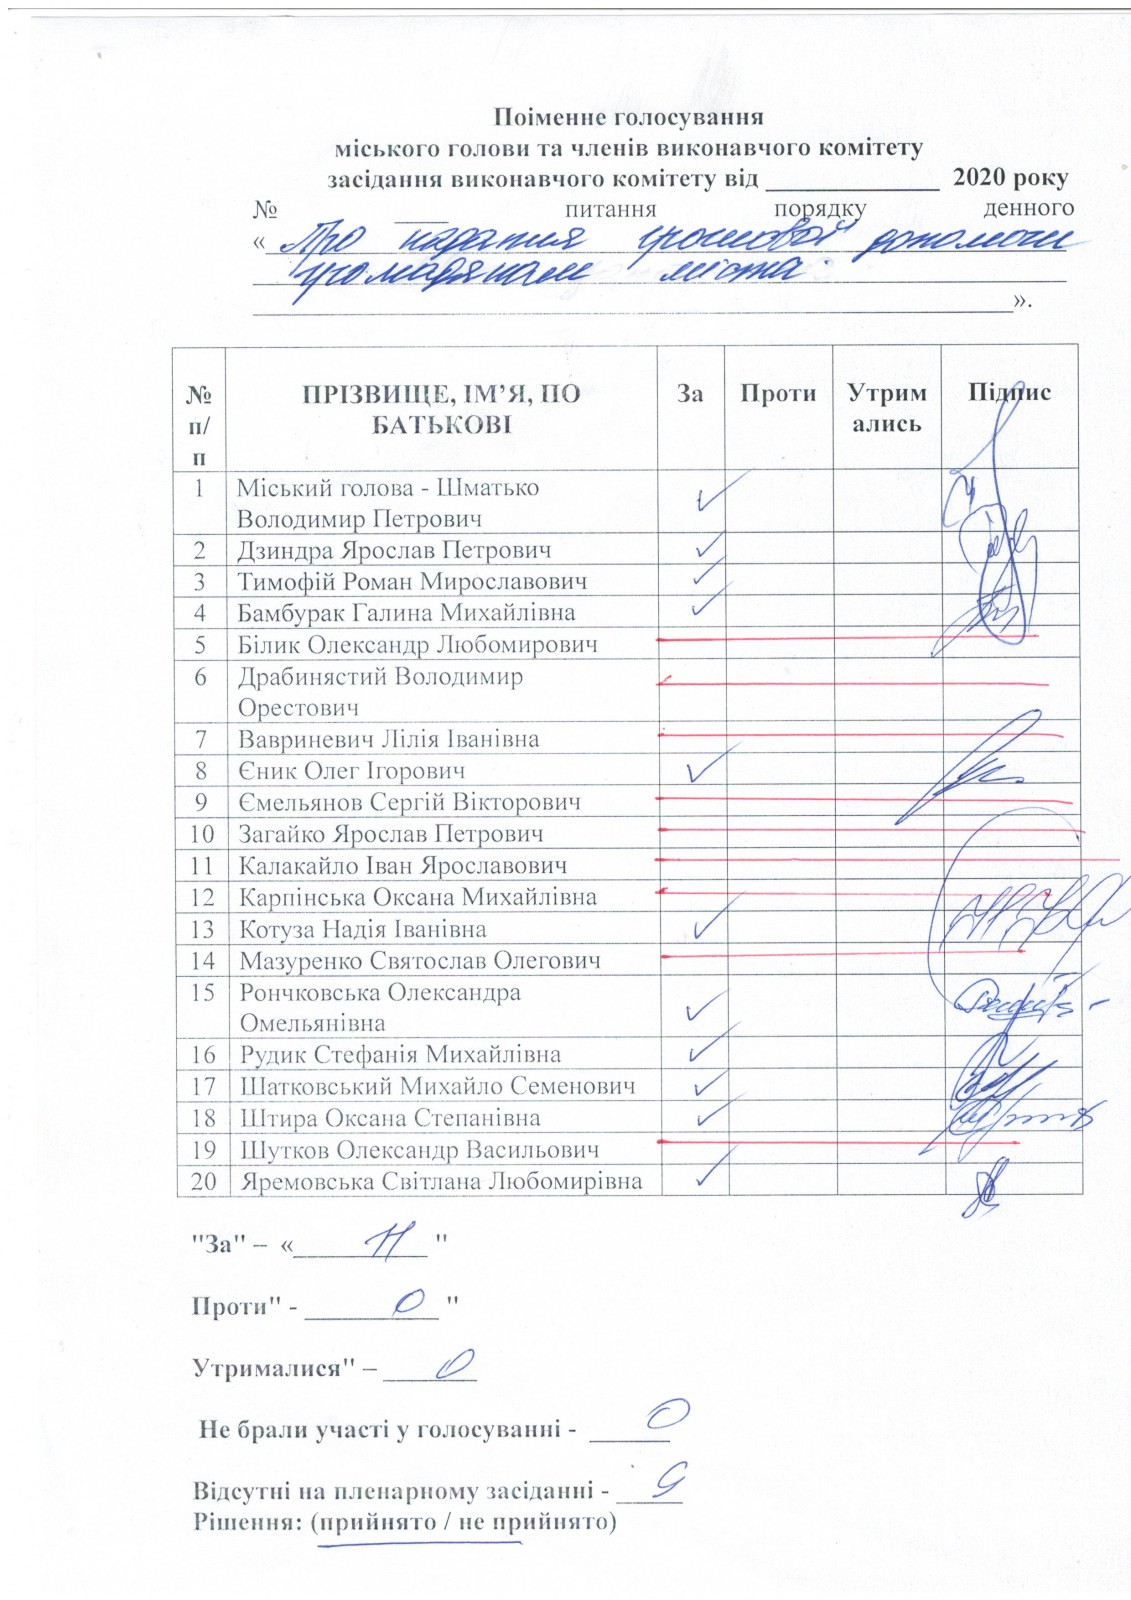 Поіменне голосування
міського голови та членів виконавчого комітету
засідання виконавчого комітету від _____________ 2020 року
№ ____ питання порядку денного
« Про надання грошової допомоги
громадянам міста
».
№ п/п ПРІЗВИЩЕ, ІМ’Я, ПО БАТЬКОВІ За Проти Утримались Підпис
1 Міський голова - Шматько
Володимир Петрович
2 Дзиндра Ярослав Петрович
3 Тимофій Роман Мирославович
4 Бамбурак Галина Михайлівна
5 Білик Олександр Любомирович
6 Драбинястий Володимир
Орестович
7 Вавриневич Лілія Іванівна
8 Єник Олег Ігорович
9 Ємельянов Сергій Вікторович
10 Загайко Ярослав Петрович
11 Калакайло Іван Ярославович
12 Карпінська Оксана Михайлівна
13 Котуза Надія Іванівна
14 Мазуренко Святослав Олегович
15 Рончковська Олександра
Омельянівна
16 Рудик Стефанія Михайлівна
17 Шатковський Михайло Семенович
18 Штира Оксана Степанівна
19 Шутков Олександр Васильович
20 Яремовська Світлана Любомирівна
"За" – « 11 "
Проти" - 0 "
Утрималися" – 0
Не брали участі у голосуванні - 0
Відсутні на пленарному засіданні - 9
Рішення: (прийнято / не прийнято)